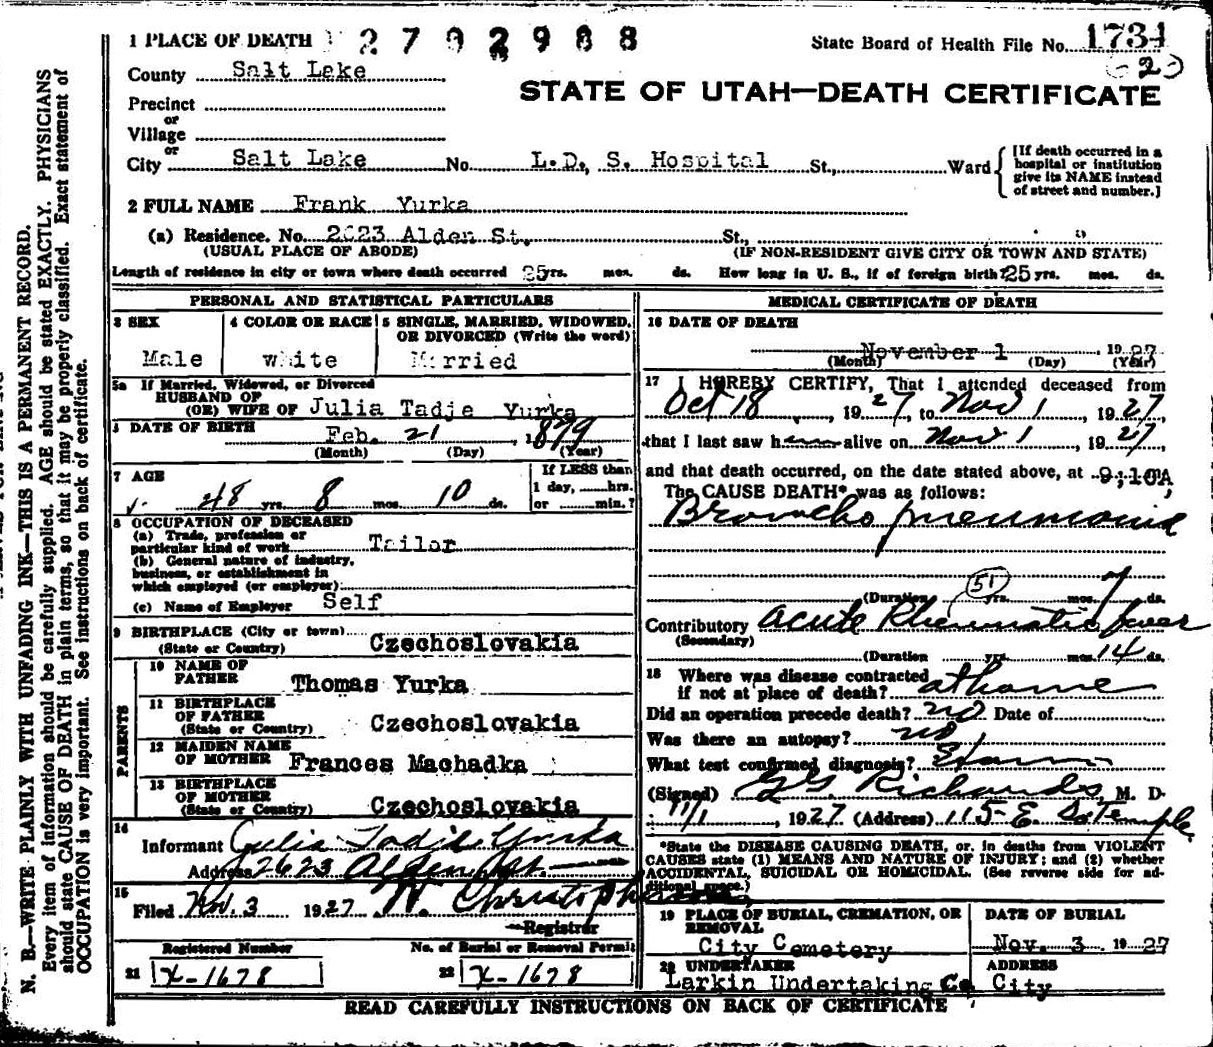 1 PLACE OF DEATH 2702988
State Board of Health File No. 1734
County Salt Lake
STATE OF UTAH—DEATH CERTIFICATE
Precinct
or
Village
or
City Salt Lake No. L.D. S. Hospital St., Ward
[If death occurred in a
hospital or institution
give its NAME instead
of street and number.]
2 FULL NAME Frank Yurka
(a) Residence. No. 2623 Alden St. St.,
(USUAL PLACE OF ABODE) (IF NON-RESIDENT GIVE CITY OR TOWN AND STATE)
Length of residence in city or town where death occurred 25 yrs. mos. ds. How long in U. S., if of foreign birth? 25 yrs. mos. ds.
PERSONAL AND STATISTICAL PARTICULARS
3 SEX
Male
4 COLOR OR RACE
White
5 SINGLE, MARRIED, WIDOWED,
OR DIVORCED (Write the word)
Married
5a If Married, Widowed, or Divorced
HUSBAND OF
(OR) WIFE OF Julia Tadje Yurka
DATE OF BIRTH
Feb. 21, 1879
(Month) (Day) (Year)
7 AGE
48 yrs. 8 mos. 10 ds.
If LESS than
1 day, hrs.
or min.?
8 OCCUPATION OF DECEASED
(a) Trade, profession or
particular kind of work Tailor
(b) General nature of industry,
business, or establishment in
which employed (or employer)
(c) Name of Employer Self
9 BIRTHPLACE (City or town)
(State or Country) Czechoslovakia
PARENTS
10 NAME OF
FATHER Thomas Yurka
11 BIRTHPLACE
OF FATHER
(State or Country) Czechoslovakia
12 MAIDEN NAME
OF MOTHER Frances Machadka
13 BIRTHPLACE
OF MOTHER
(State or Country) Czechoslovakia
14
Informant Julia Tadje Yurka
Address 2623 Alden St.
15
Filed Nov. 3 1927 W. Christopherson
Registrar
Registered Number
21 X-1678
No. of Burial or Removal Permit
22 X-1678
MEDICAL CERTIFICATE OF DEATH
16 DATE OF DEATH
November 1 1927
(Month) (Day) (Year)
17 I HEREBY CERTIFY, That I attended deceased from
Oct 18, 1927, to Nov 1, 1927,
that I last saw h alive on Nov 1, 1927
and that death occurred, on the date stated above, at 9:10A
The CAUSE DEATH* was as follows:
Broncho pneumonia
51
(Duration yrs. mos. 7 ds.
Contributory Acute Rheumatic fever
(Secondary)
(Duration yrs. mos. 14 ds.
18 Where was disease contracted
if not at place of death? at home
Did an operation precede death? no Date of
Was there an autopsy? no
What test confirmed diagnosis?
(Signed) G.G. Richards, M. D.
11/1, 1927 (Address) 115-E. So. Temple
*State the DISEASE CAUSING DEATH, or, in deaths from VIOLENT
CAUSES state (1) MEANS AND NATURE OF INJURY; and (2) whether
ACCIDENTAL, SUICIDAL OR HOMICIDAL. (See reverse side for ad-
ditional space.)
19 PLACE OF BURIAL, CREMATION, OR
REMOVAL
City Cemetery
DATE OF BURIAL
Nov. 3 1927
20 UNDERTAKER
Larkin Undertaking Co
ADDRESS
City
READ CAREFULLY INSTRUCTIONS ON BACK OF CERTIFICATE
N. B.—WRITE PLAINLY WITH UNFADING INK—THIS IS A PERMANENT RECORD.
Every item of information should be carefully supplied. AGE should be stated EXACTLY. PHYSICIANS
should state CAUSE OF DEATH in plain terms, so that it may be properly classified. Exact statement of
OCCUPATION is very important. See instructions on back of certificate.